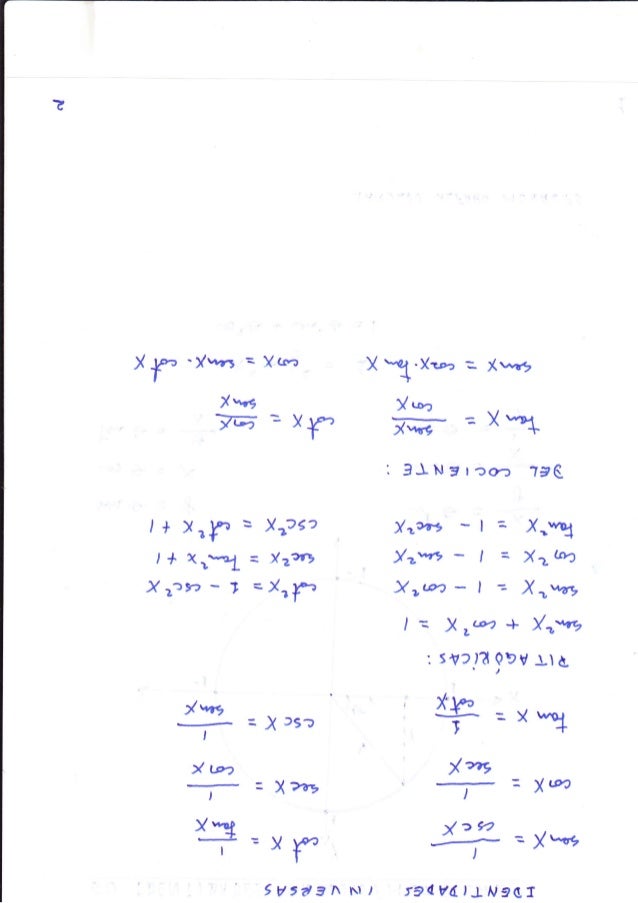 IDENTIDADES INVERSAS
sen X = 1/csc X    cot X = 1/tan X
cos X = 1/sec X    sec X = 1/cos X
tan X = 1/cot X    csc X = 1/sen X
PITAGÓRICAS:
sen²X + cos²X = 1
sen²X = 1 - cos²X    cot²X = 1 - csc²X
cos²X = 1 - sen²X    sec²X = tan²X + 1
tan²X = 1 - sec²X    csc²X = cot²X + 1
DEL COCIENTE:
tan X = senX/cosX    cot X = cosX/senX
senX = cosX·tan X    cosX = senX·cot X
2